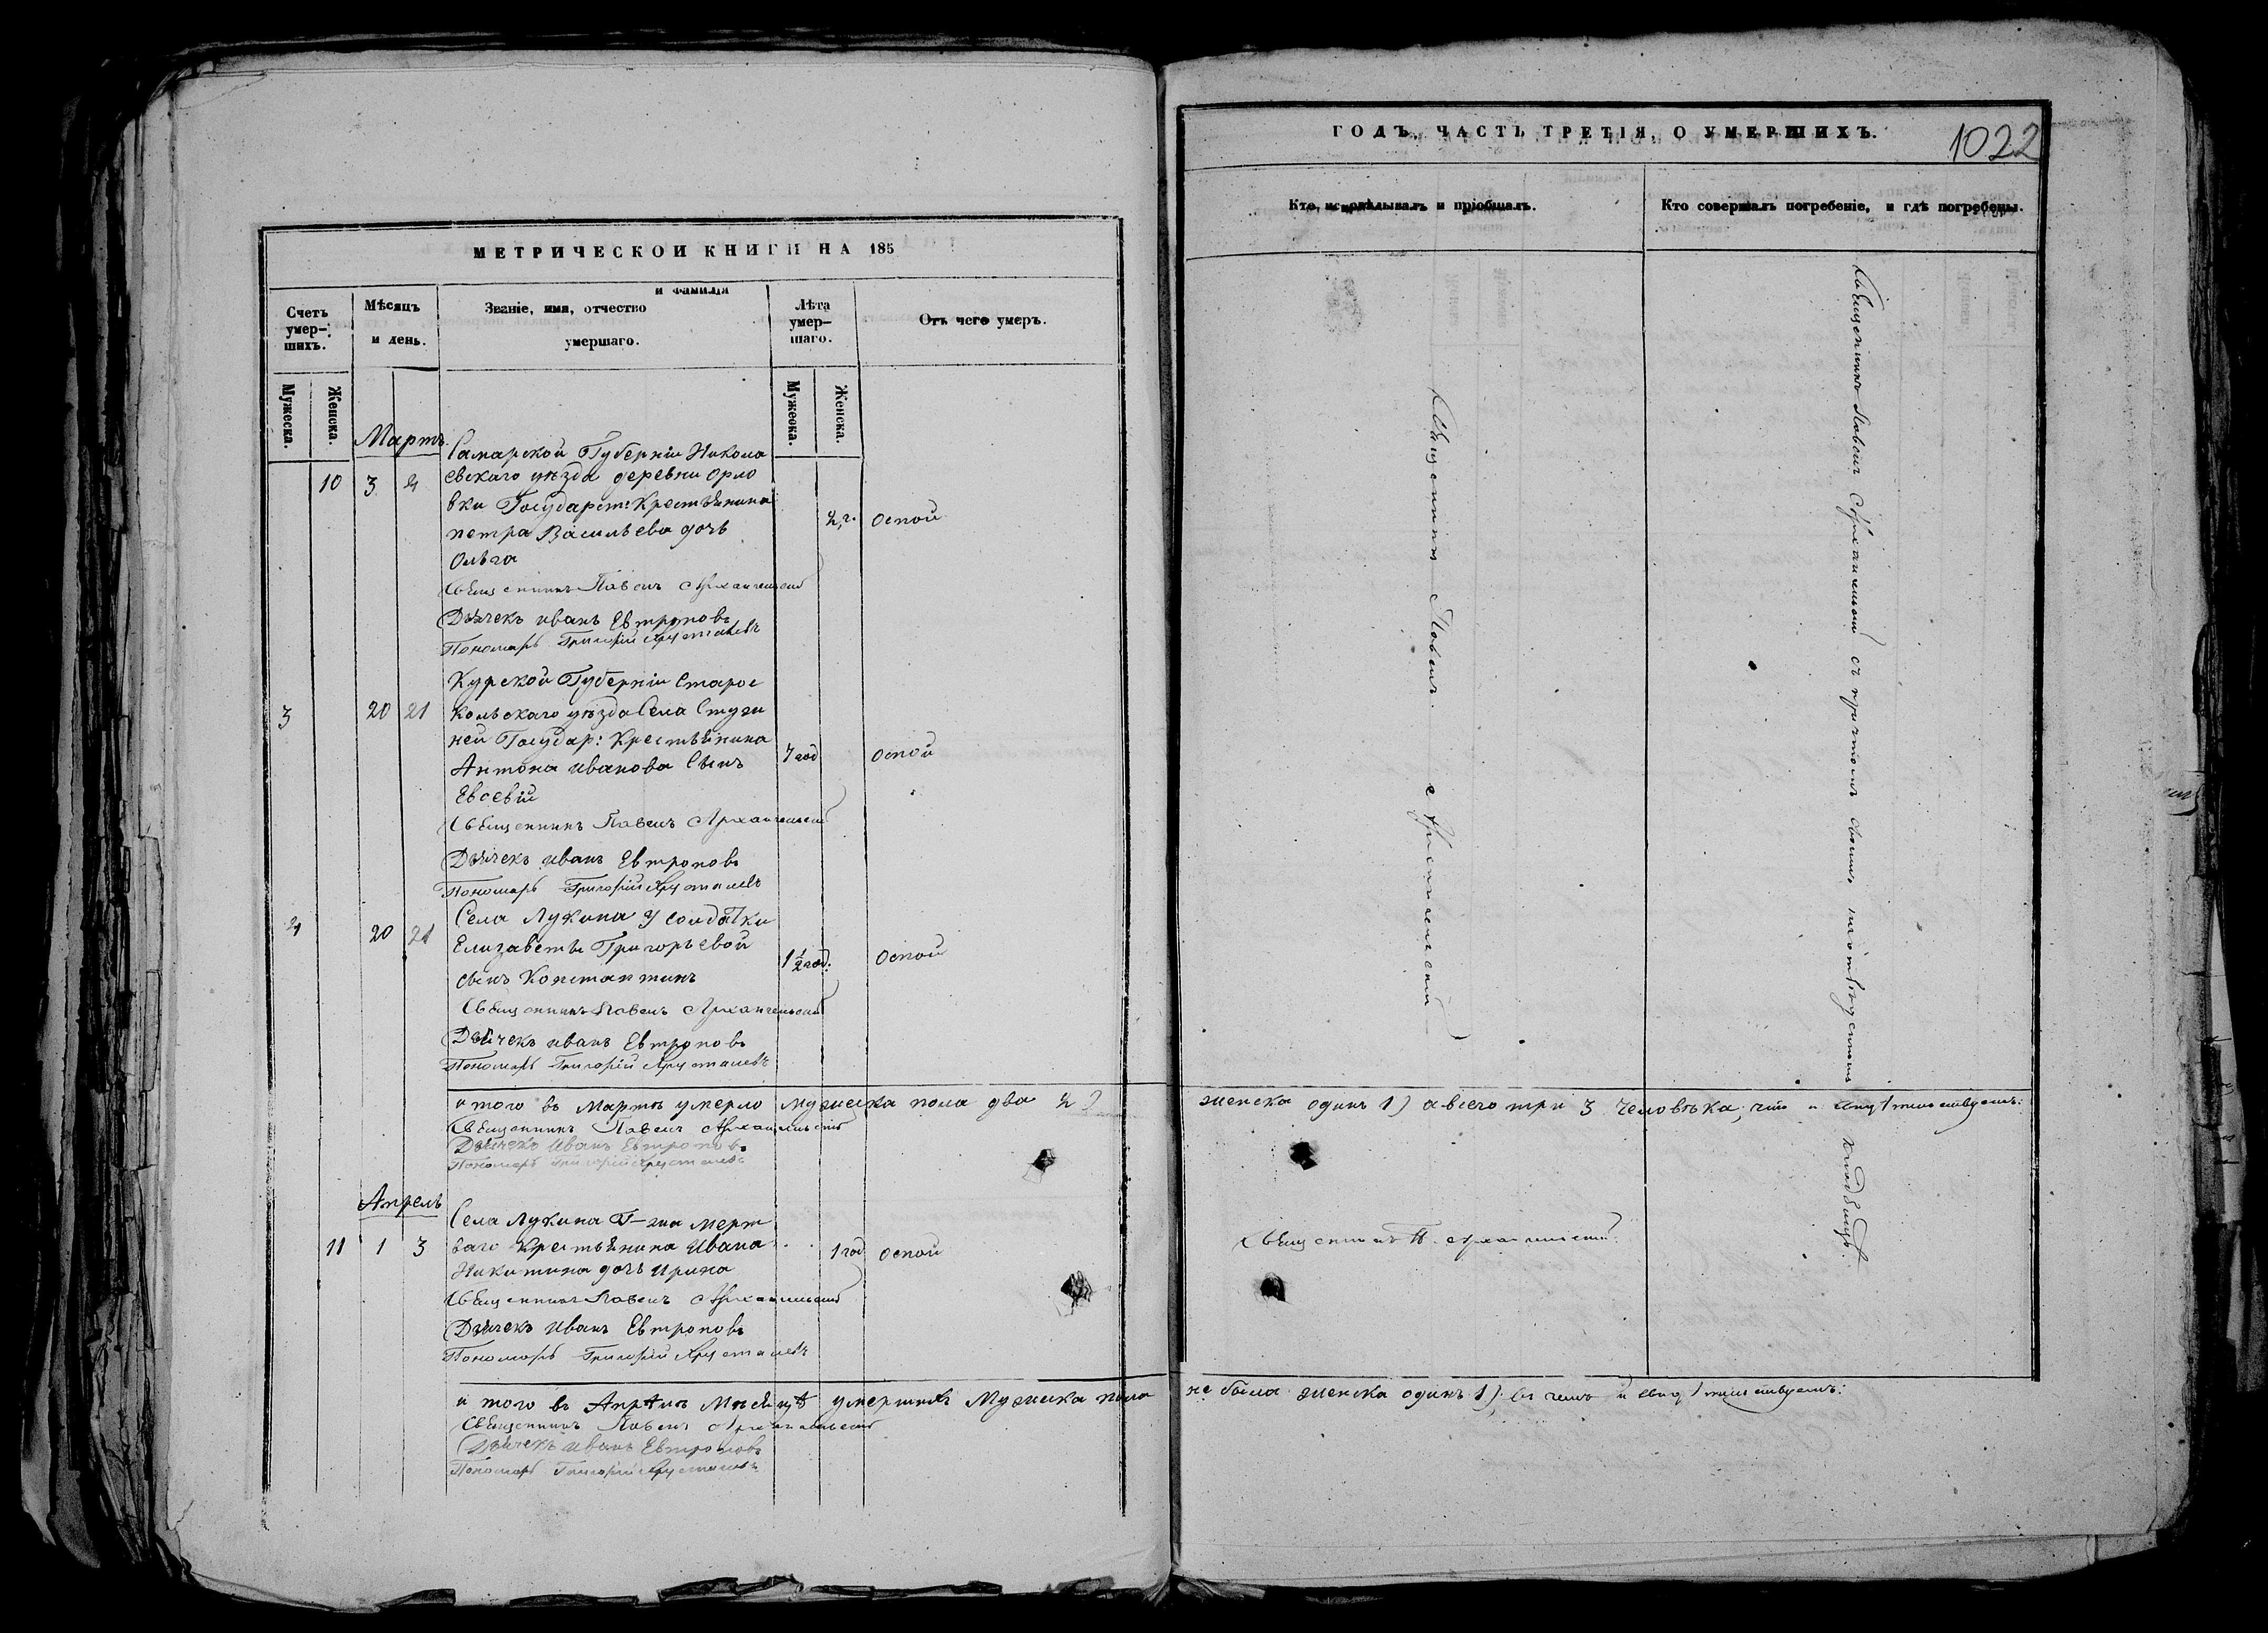 МЕТРИЧЕСКОЙ КНИГИ НА 185
Счетъ умер-шихъ.
Мѣсяцъ и день.
Званіе, имя, отчество и фамилія умершаго.
Лѣта умер-шаго.
Отъ чего умеръ.
Мужеска.
Женска.
Мужеска.
Женска.
Мартъ
Самарской Губерніи Никола
10 3 4 евскаго уѣзда деревни Орло
вки Государст: Крестьянина
петра Васильева дочь 2,г. оспой
Ольга
Священникъ Павелъ Архангельскій
Дьячекъ иванъ Евтроповъ
Пономарь Григорій Хрусталевъ
Курской Губерніи Старос
3 20 21 кольскаго уѣзда Села Студе
ней Государ: Крестьянина
Антона иванова Сынъ 7 год оспой
Евсевій
Священникъ Павелъ Архангельскій
Дьячекъ иванъ Евтроповъ
Пономарь Григорій Хрусталевъ
Села Лукина у солдатки
4 20 21 Елизаветы Григорьевой
сынъ Константинъ 1½ год: оспой
Священникъ Павелъ Архангельскій
Дьячекъ иванъ Евтроповъ
Пономарь Григорій Хрусталевъ
и того въ Мартѣ умерло мужеска пола два 2)
Священникъ Павелъ Архангельскій
Дьячекъ Иванъ Евтроповъ
Пономарь Григорій Хрусталевъ
Апрель
Села Лукина Г-жи Мерт
11 1 3 ваго Крестьянина Ивана 1 год оспой
Никитина дочь ирина
Священникъ Павелъ Архангельскій
Дьячекъ Иванъ Евтроповъ
Пономарь Григорій Хрусталевъ
и того въ Апрѣлѣ Мѣсяцѣ умершихъ Мужеска пола
Священникъ Павелъ Архангельскій
Дьячекъ иванъ Евтроповъ
Пономарь Григорій Хрусталевъ
ГОДЪ, ЧАСТЬ ТРЕТІЯ, О УМЕРШИХЪ.
1022
Кто исповѣдывалъ и пріобщалъ.
Кто совершалъ погребеніе, и гдѣ погребены.
Священникъ Павелъ Архангельскій
Священникъ Павелъ Архангельскій съ причтомъ своимъ на отведенномъ кладбищѣ.
женска одинъ 1) а всего три 3 человѣка; что и свидѣтельствуемъ:
Священникъ П. Архангельскій.
не было женска одинъ 1) въ чемъ и свидѣтельствуемъ: